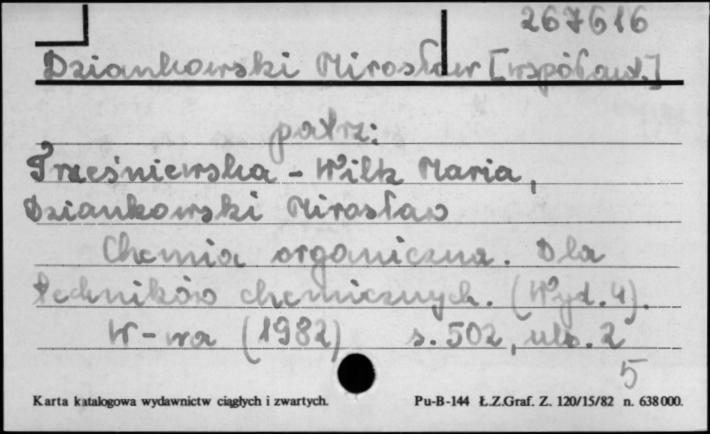 267616
Dziankowski Mirosław [współaut.]
patrz:
Trześniewska - Wilk Maria,
Dziankowski Mirosław
Chemia organiczna. Dla
techników chemicznych. (Wyd. 4).
W-wa (1982) s. 502, ulb. 2
5
Karta katalogowa wydawnictw ciągłych i zwartych. Pu-B-144 Ł.Z.Graf. Z. 120/15/82 n. 638000.